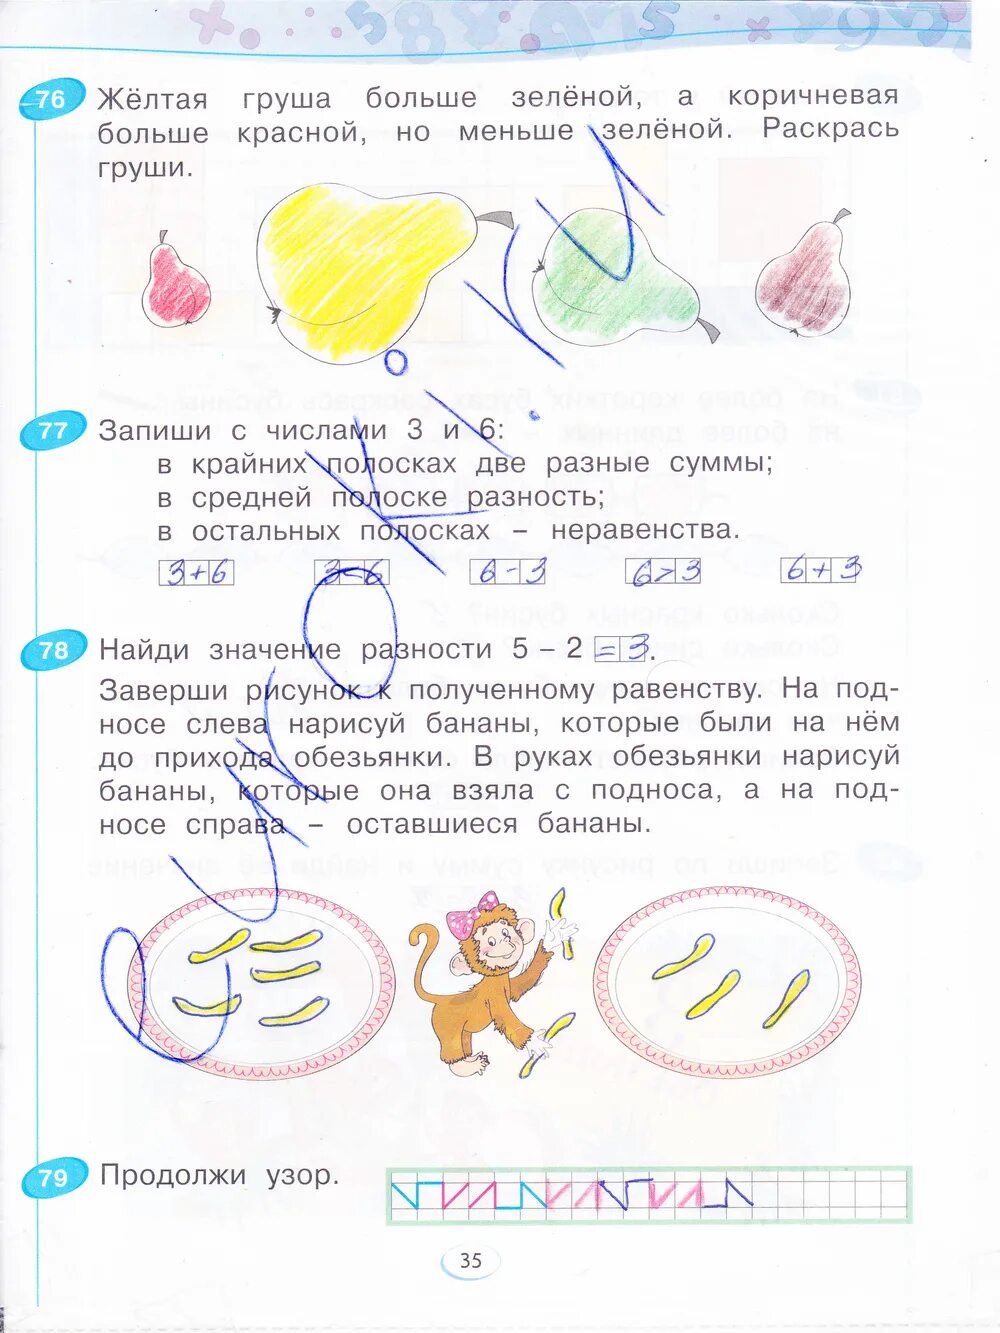 76 Жёлтая груша больше зелёной, а коричневая
больше красной, но меньше зелёной. Раскрась
груши.
77 Запиши с числами 3 и 6:
в крайних полосках две разные суммы;
в средней полоске разность;
в остальных полосках – неравенства.
3+6 3<6 6-3 6>3 6+3
78 Найди значение разности 5 – 2 =3.
Заверши рисунок к полученному равенству. На под-
носе слева нарисуй бананы, которые были на нём
до прихода обезьянки. В руках обезьянки нарисуй
бананы, которые она взяла с подноса, а на под-
носе справа – оставшиеся бананы.
79 Продолжи узор.
35